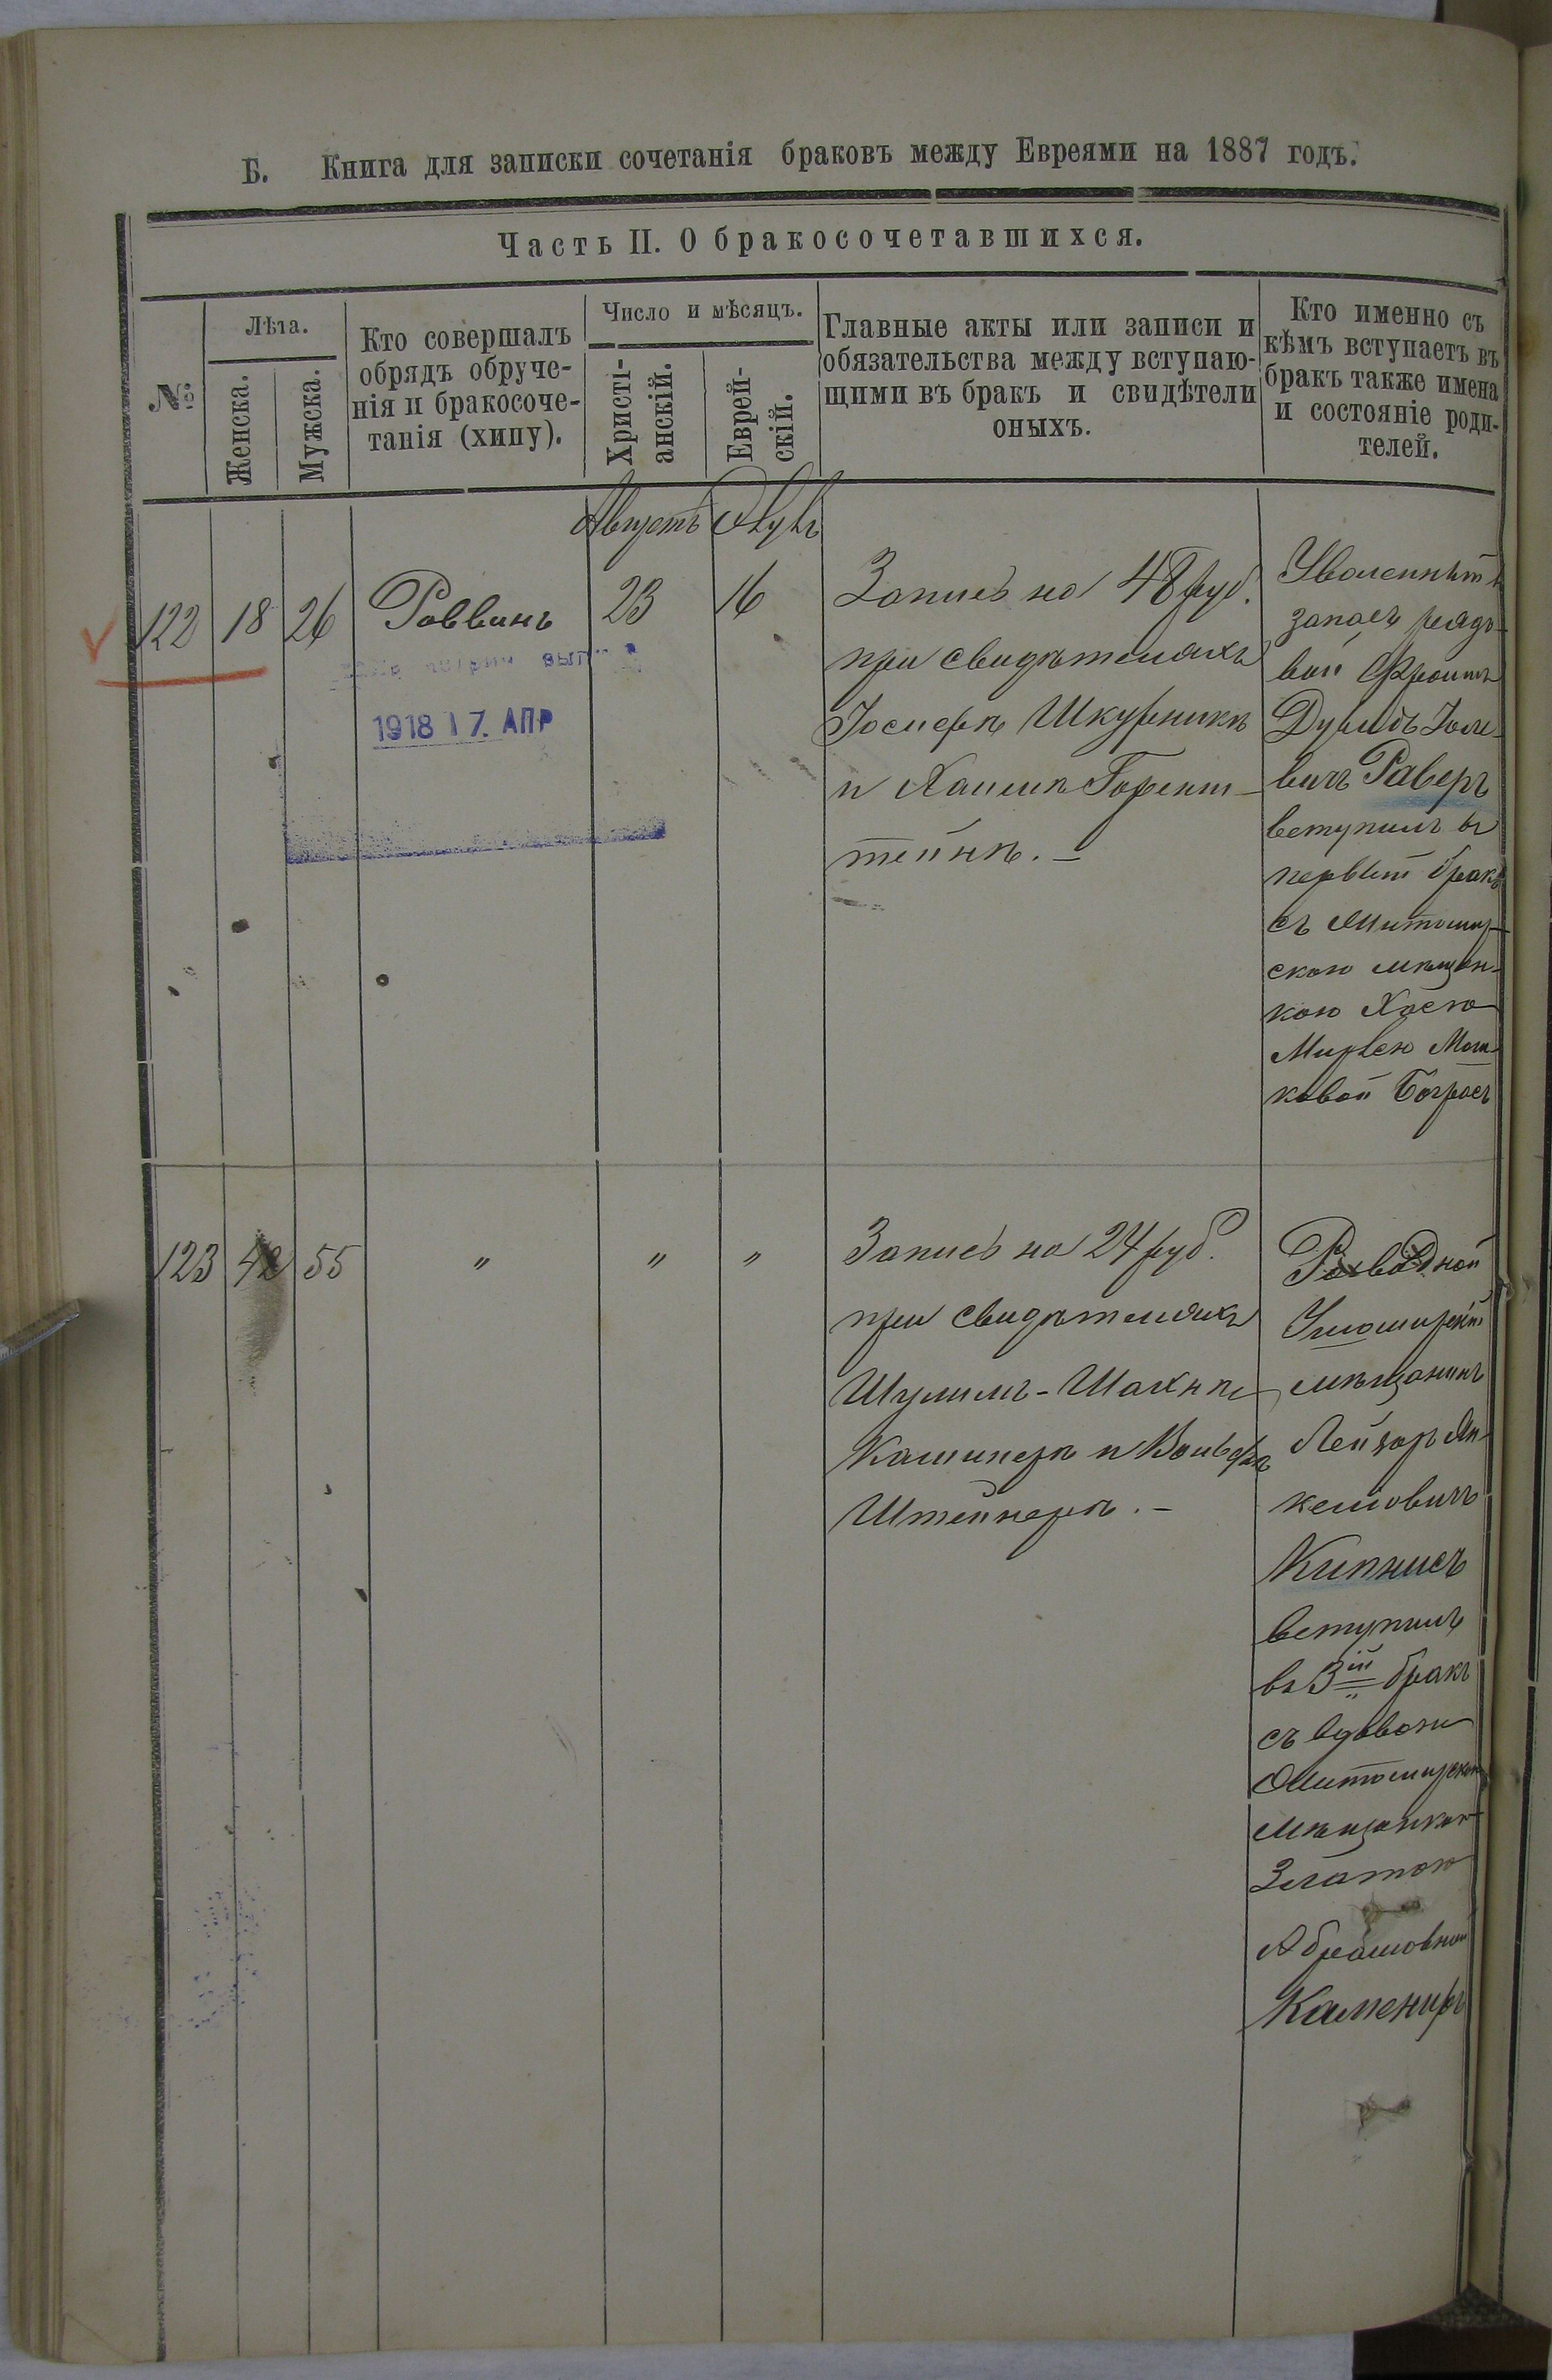 Б. Книга для записки сочетанія браковъ между Евреями на 1887 годъ.
Часть II. О бракосочетавшихся.
№
Лѣта.
Женска.
Мужска.
Кто совершалъ
обрядъ обруче-
нія и бракосоче-
танія (хипу).
Число и мѣсяцъ.
Христі-
анскій.
Еврей-
скій.
Главные акты или записи и
обязательства между вступаю-
щими въ бракъ и свидѣтели
оныхъ.
Кто именно съ
кѣмъ вступаетъ въ
бракъ также имена
и состояніе роди-
телей.
Августъ
122
18
26
Раввинъ
23
16
1918 17. АПР
Запись на 48 руб.
при свидѣтеляхъ
Іосифѣ Шкурникѣ
и Хаимѣ Горенш-
тейнѣ. —
запасъ рядо-
вой Фроимъ
Дувидъ
вичъ Раверъ
вступилъ въ
первый бракъ
съ Житомир-
скою мѣщан-
кою Хасею
Мирлею Мош-
ковой Бограсъ
123
42
55
"
"
"
Запись на 24 руб.
при свидѣтеляхъ
Шулимъ-Шахнѣ
Кашперѣ и Вольфѣ
Штейнерѣ. —
Разводной
Ушомирскій
мѣщанинъ
Лейзоръ Ян-
келіовичъ
Кипнисъ
вступилъ
въ 3ій бракъ
съ вдовою
Житомирскою
мѣщанкою
Златою
Абрамовной
Камениръ